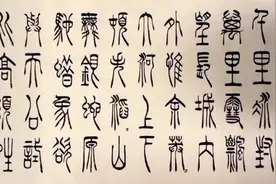 千里冰封
萬里雪飄
望長城內
外惟余莽
大河上下
頓失滔山
舞銀蛇原
馳蠟象欲
與天公試
比高須晴